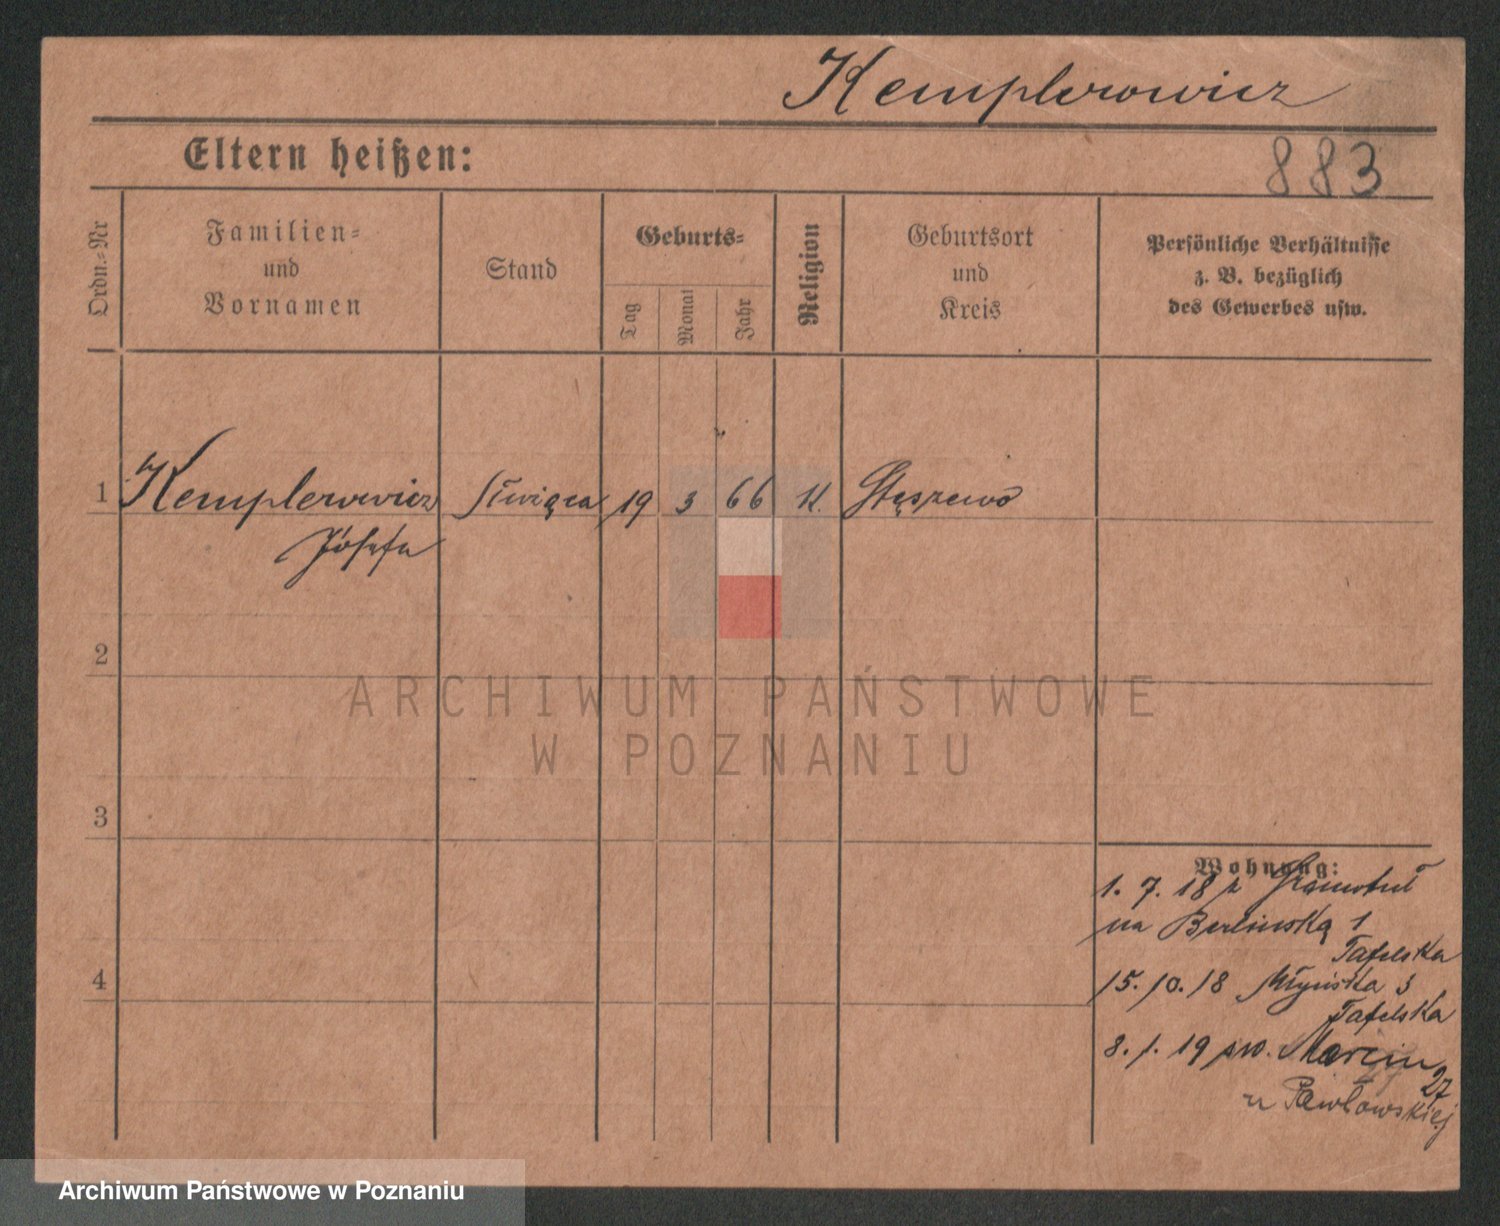 Kemplerowicz
Eltern heißen:
883
Ordn.-Nr
Familien-
und
Vornamen
Stand
Geburts-
Tag
Monat
Jahr
Religion
Geburtsort
und
Kreis
Persönliche Verhältnisse
z. B. bezüglich
des Gewerbes usw.
1 Kemplerowicz 19 3 66 K. Stęszewo
Józefa
2
3
4
Wohnung:
1. 7. 18 z
na Berlinską 1
Tafelska
15. 10. 18 Młyńska 3
Tafelska
8. 1. 19 Marcin 27
u Pawłowskiej
ARCHIWUM PAŃSTWOWE
W POZNANIU
Archiwum Państwowe w Poznaniu